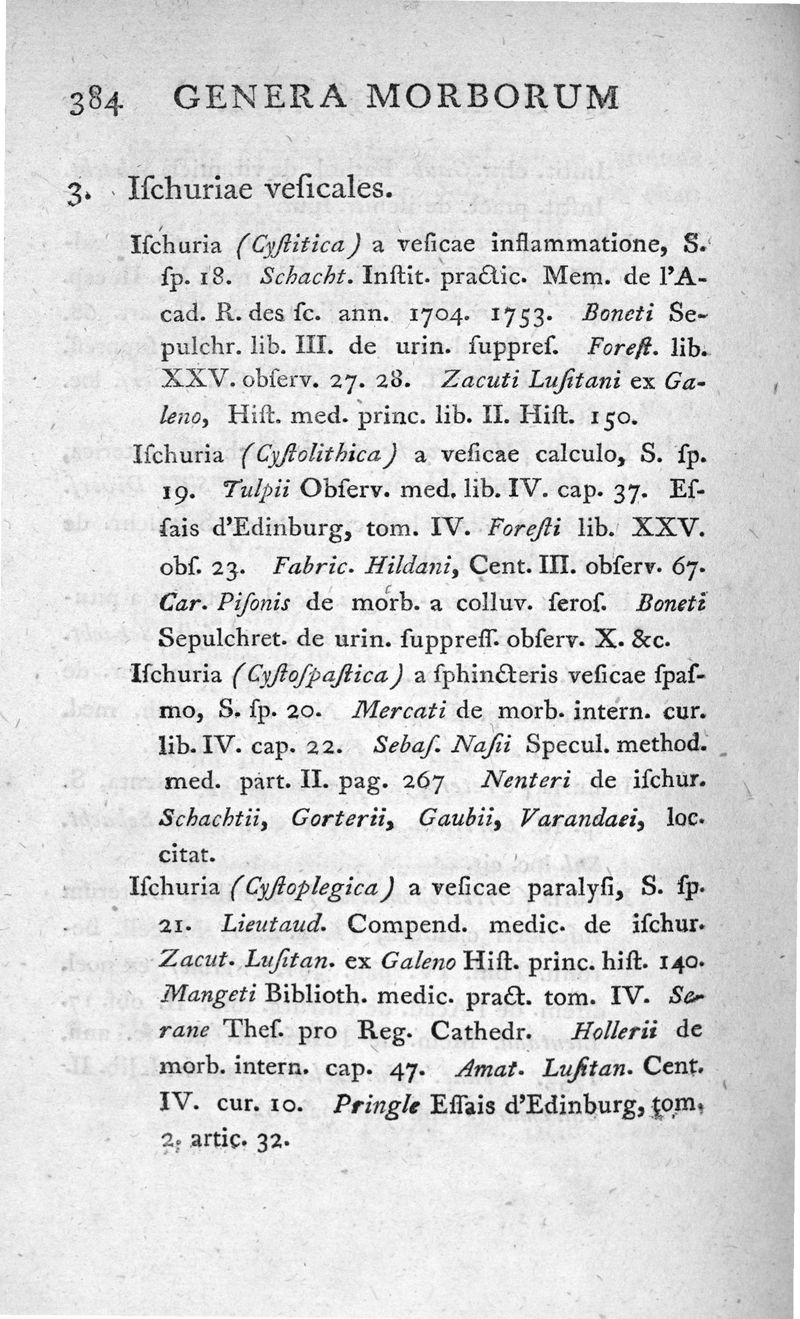 384 GENERA MORBORUM
3. Iſchuriae veſicales.
Iſchuria (Cyſtitica) a veſicae inflammatione, S.
ſp. 18. Schacht. Inſtit. practic. Mem. de l'A-
cad. R. des ſc. ann. 1704. 1753. Boneti Se-
pulchr. lib. III. de urin. ſuppreſ. Foreſt. lib.
XXV. obſerv. 27. 28. Zacuti Luſitani ex Ga-
leno, Hiſt. med. princ. lib. II. Hiſt. 150.
Iſchuria (Cyſtolithica) a veſicae calculo, S. ſp.
19. Tulpii Obſerv. med. lib. IV. cap. 37. Eſ-
ſais d'Edinburg, tom. IV. Foreſti lib. XXV.
obſ. 23. Fabric. Hildani, Cent. III. obſerv. 67.
Car. Piſonis de morb. a colluv. ſeroſ. Boneti
Sepulchret. de urin. ſuppreſſ. obſerv. X. &c.
Iſchuria (Cyſtoſpaſtica) a ſphincteris veſicae ſpaſ-
mo, S. ſp. 20. Mercati de morb. intern. cur.
lib. IV. cap. 22. Sebaſ. Naſii Specul. method.
med. part. II. pag. 267 Nenteri de iſchur.
Schachtii, Gorterii, Gaubii, Varandaei, loc.
citat.
Iſchuria (Cyſtoplegica) a veſicae paralyſi, S. ſp.
21. Lieutaud. Compend. medic. de iſchur.
Zacut. Luſitan. ex Galeno Hiſt. princ. hiſt. 140.
Mangeti Biblioth. medic. pract. tom. IV. Se-
rane Theſ. pro Reg. Cathedr. Hollerii de
morb. intern. cap. 47. Amat. Luſitan. Cent.
IV. cur. 10. Pringle Eſſais d'Edinburg, tom.
2. artic. 32.